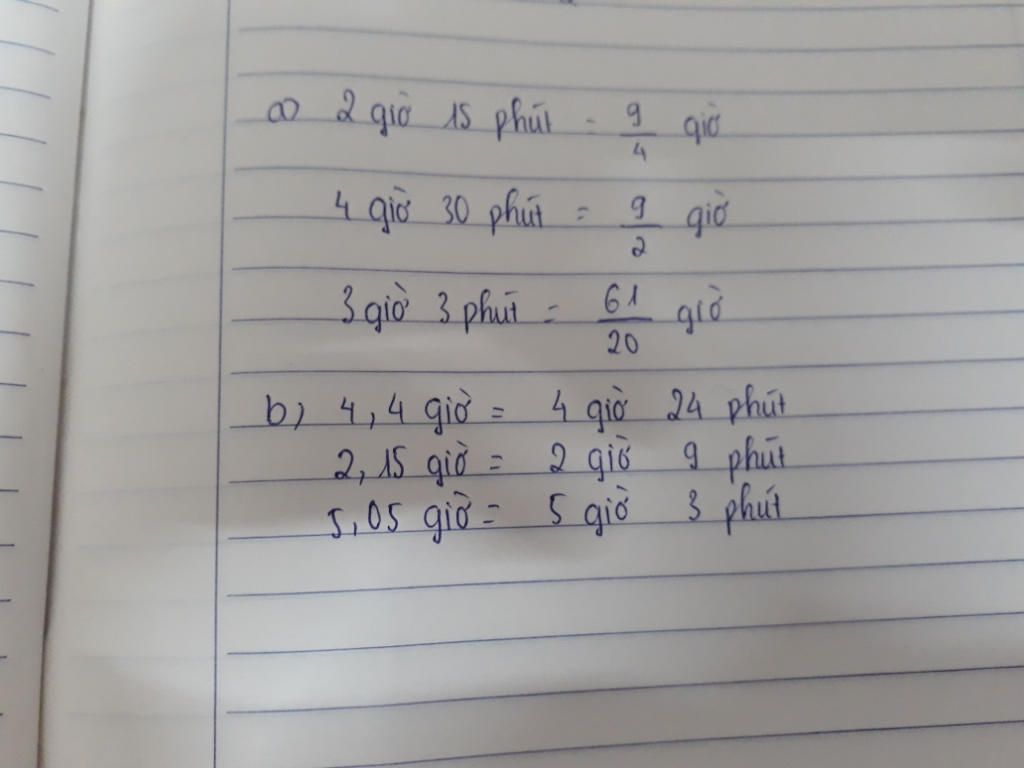 a) 2 giờ 15 phút = 9/4 giờ
4 giờ 30 phút = 9/2 giờ
3 giờ 3 phút = 61/20 giờ
b) 4,4 giờ = 4 giờ 24 phút
2,15 giờ = 2 giờ 9 phút
5,05 giờ = 5 giờ 3 phút